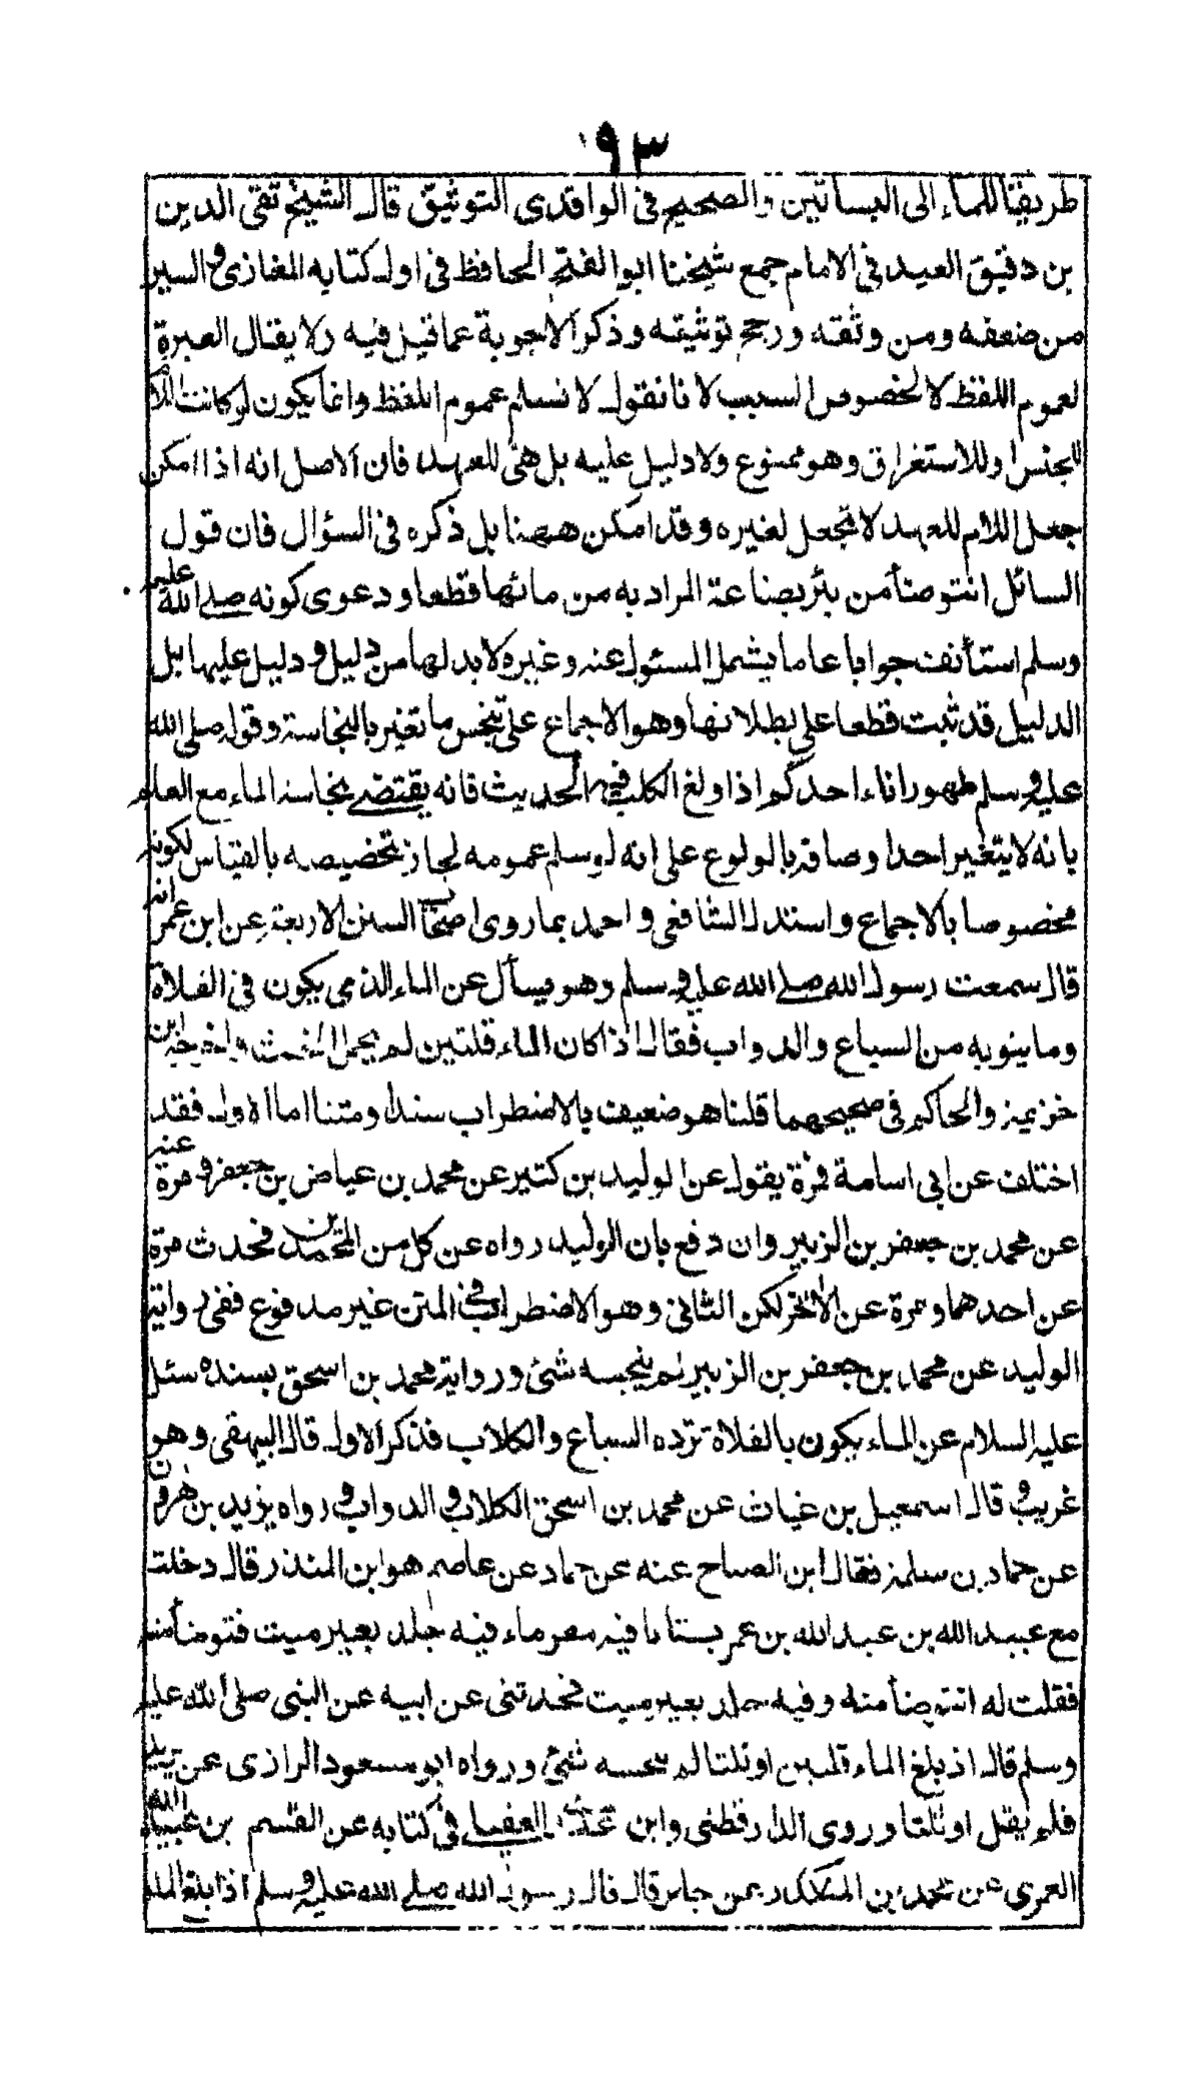 ٩٣
طريقا للماء الى البساتين والصحيح فى الواقدى التوثيق قال الشيخ تقى الدين
بن دقيق العيد فى الامام جمع شيخنا ابو الفتح الحافظ فى اول كتابه المغازى و السير
من ضعفه ومن وثقه ورجح توثيقه وذكر الاجوبة عما قيل فيه ولا يقال العبرة
لعموم اللفظ لا لخصوص السبب لانا نقول لا نسلم عموم اللفظ وانما يكون لو كانت اللام
للجنس او للاستغراق وهو ممنوع ولا دليل عليه بل هى للعهد فان الاصل انه اذا امكن
جعل اللام للعهد لا تجعل لغيره وقد امكن ههنا بل ذكره فى السؤال فان قول
السائل انتوضأ من بئر بضاعة المراد به من مائها قطعا ودعوى كونه صلى الله عليه
وسلم استأنف جوابا عاما يشمل المسئول عنه وغيره لا بد لها من دليل و دليل عليها بل
الدليل قد ثبت قطعا على بطلانها وهو الاجماع على تنجس ما تغير بالنجاسة وقوله صلى الله
عليه و سلم طهور اناء احدكم اذا ولغ الكلب فيه الحديث فانه يقتضى نجاسة الماء مع العلم
بانه لا يتغير احد اوصافه بالولوغ على انه لو سلم عمومه لجاز تخصيصه بالقياس لكونه
مخصوصا بالاجماع واستدل الشافعى واحمد بما روى اصحاب السنن الاربعة عن ابن عمر انه
قال سمعت رسول الله صلى الله عليه و سلم وهو يسأل عن الماء الذى يكون فى الفلاة
وما ينوبه من السباع والدواب فقال اذا كان الماء قلتين لم يحمل الخبث واخرجه ابن
خزيمة والحاكم فى صحيحهما قلنا هو ضعيف بالاضطراب سندا ومتنا اما الاول فقد
اختلف عن ابى اسامة فمرة يقول عن الوليد بن كثير عن محمد بن عياض بن جعفر و مرة عنه
عن محمد بن جعفر بن الزبير وان دفع بان الوليد رواه عن كل من المحمدين فحدث مرة
عن احدهما ومرة عن الآخر لكن الثانى وهو الاضطراب فى المتن غير مدفوع ففى رواية
الوليد عن محمد بن جعفر بن الزبير لم ينجسه شئ ورواية محمد بن اسحق بسنده سئل
عليه السلام عن الماء يكون بالفلاة ترده السباع والكلاب فذكر الاول قال البيهقى وهو
غريب و قال اسمعيل بن غياث عن محمد بن اسحق الكلاب و الدواب و رواه يزيد بن هرون
عن حماد بن سلمة فقال ابن الصباح عنه عن حماد عن عاصم هو ابن المنذر قال دخلت
مع عبيد الله بن عبد الله بن عمر بستانا فيه مقر ماء فيه جلد بعير ميت فتوضأ منه
فقلت له اتتوضأ منه وفيه جلد بعير ميت فحدثنى عن ابيه عن النبى صلى الله عليه
وسلم قال اذ بلغ الماء قلتين او ثلثا لم ينجسه شئ ورواه ابو مسعود الرازى عن يزيد
فلم يقل او ثلثا وروى الدارقطنى وابن عدى العقيلى فى كتابه عن القسم بن عبيد الله
العمرى عن محمد بن المنكدر عن جابر قال قال رسول الله صلى الله عليه و سلم اذا بلغ الماء